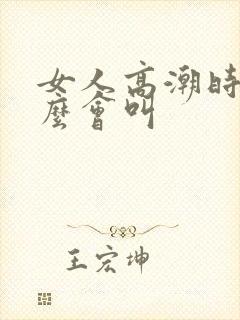 女人高潮时
麼會叫
王宏坤